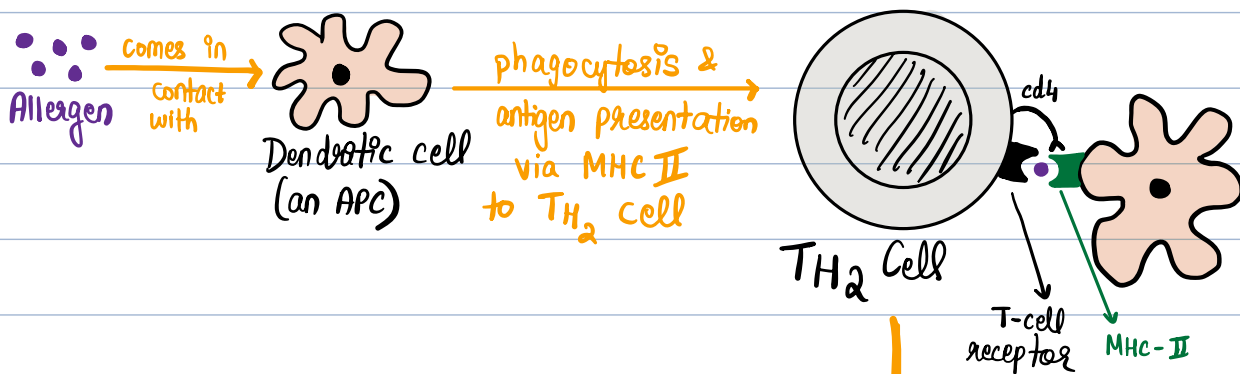 Allergen
comes in
contact
with
Dendratic cell
(an APC)
phagocytosis &
antigen presentation
via MHC II
to TH2 cell
TH2 Cell
cd4
T-cell
receptor
MHC-II